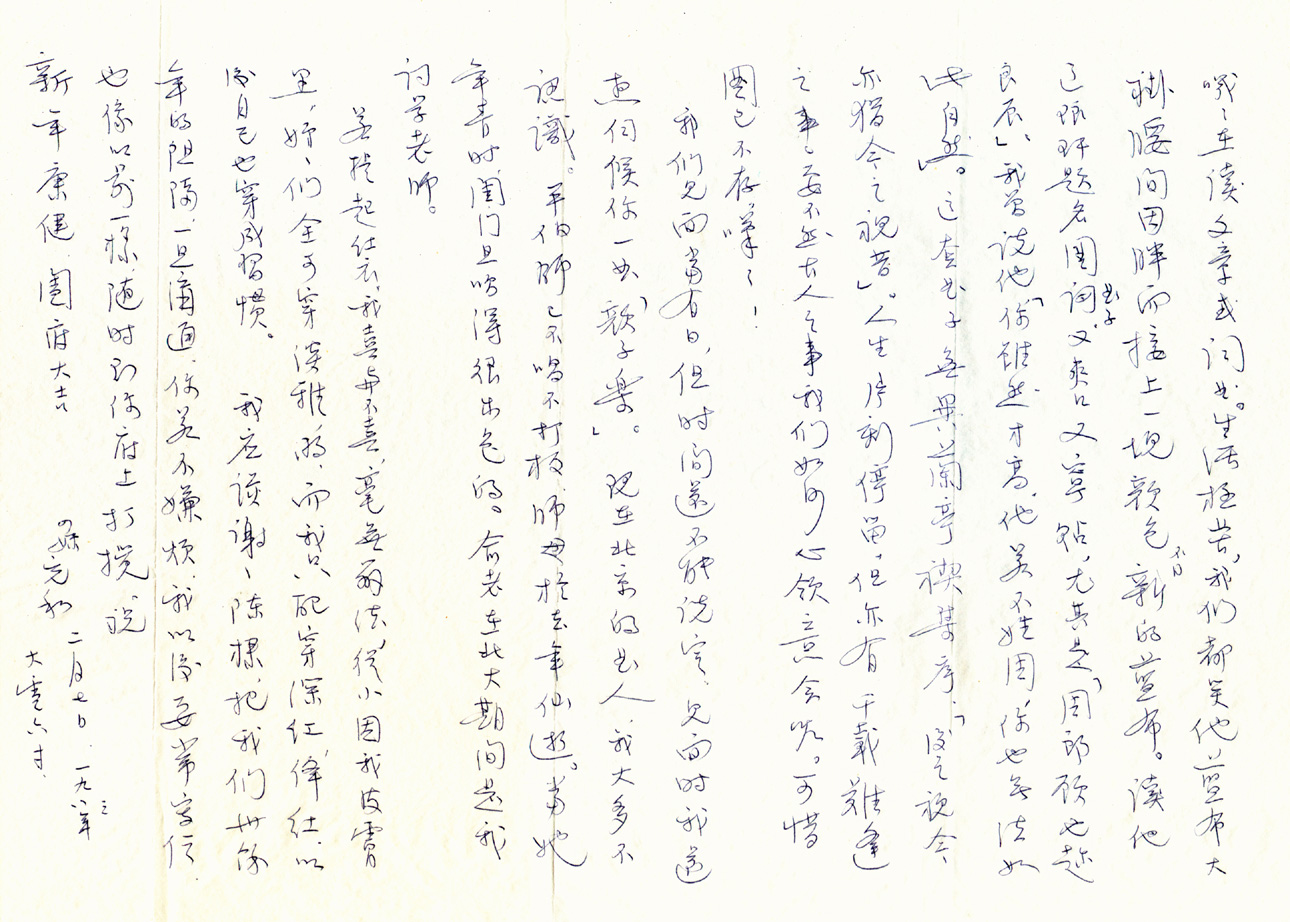 哦哦在读文章或词曲。生活极苦,我们都笑他蓝布大
褂腰间因胖而接上一块颜色不同新的蓝布。读他
这题名圈词曲子,又爽口又宁贴,尤其是「周郎顾也趁
良辰」,我曾说他「你虽然才高,他若不姓周,你也无法如
此自然」。这套曲子无异兰亭禊集序,「后之视今
亦犹今之视昔」。人生片刻停留,但亦有千载难逢
之事,要不然古人之事我们如何心领意会呢。可惜
图已不存,嘆嘆!
我们见面当有日,但时间还不能说定,见面时我还
想伺候你一曲「颜子乐」。现在北京的曲人,我大多不
认识。平伯师已不唱不打板,师母于去年仙逝。当她
年青时,闺门旦唱得很出色的。俞老在北大期间是我
词学老师。
若提起红衣,我喜与不喜,毫无办法,从小因我皮肤
里,妹妹们全可穿淡雅的,而我只配穿深红绛红,以
后自己也穿成习惯。 我应该谢谢陈棵,把我们卅余
年的阻隔,一旦沟通,你若不嫌烦,我以后要常写信
也像以前一样,随时到你府上打搅,祝
新年康健,阖府大吉
元和 二月七日,一九八三年
大雪六寸.